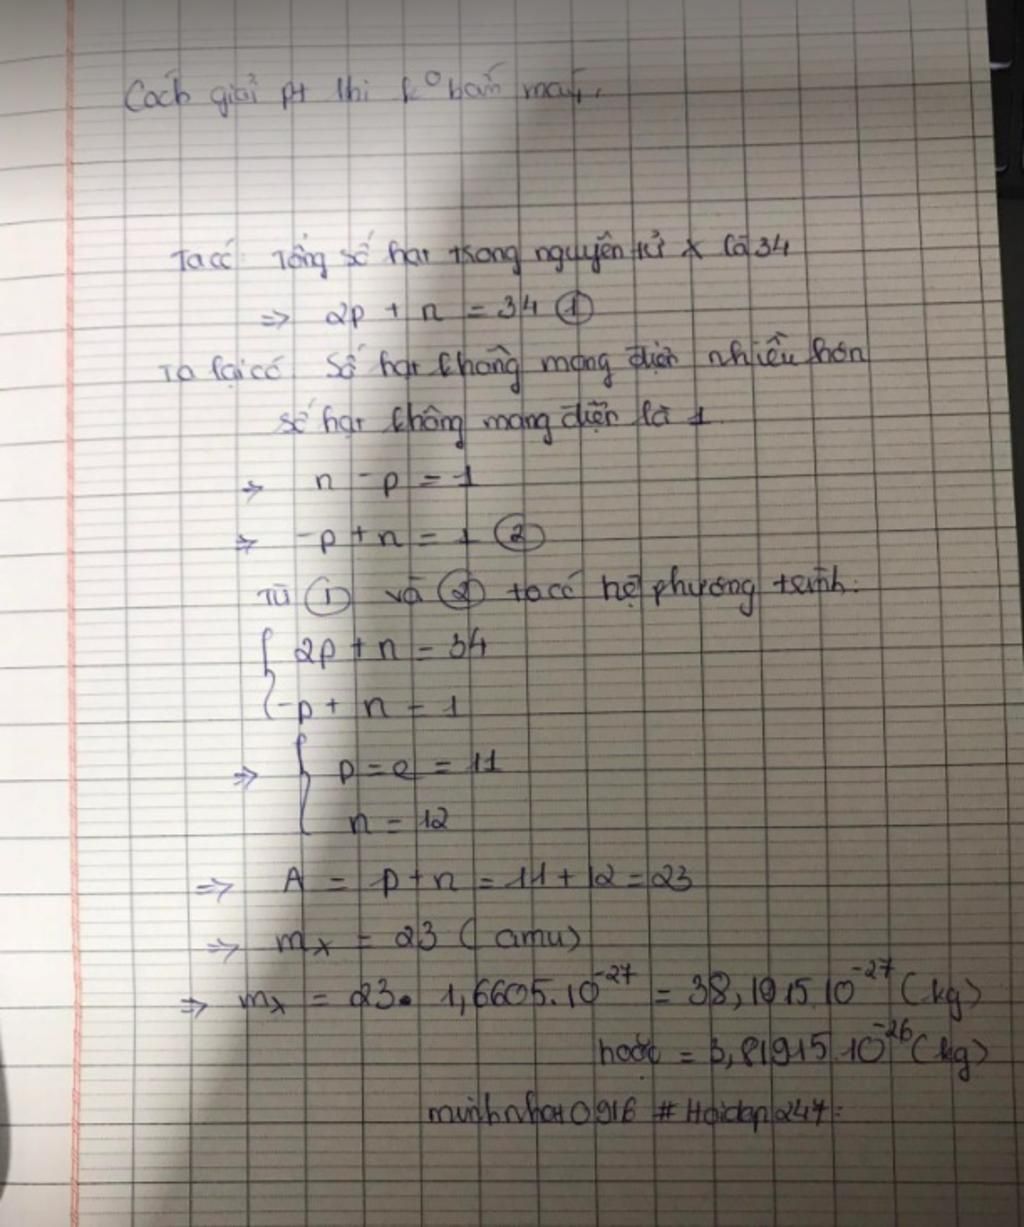 Cách giải pt thì k° bấm máy.
Ta có: Tổng số hạt trong nguyên tử X là 34
=> 2p + n = 34 ①
Ta lại có Số hạt không mang điện nhiều hơn
số hạt không mang điện là 1
=> n - p = 1
=> -p + n = 1 ②
Từ ① và ② ta có hệ phương trình:
{ 2p + n = 34
-p + n = 1
=> { p = e = 11
n = 12
=> A = p + n = 11 + 12 = 23
=> mx = 23 (amu)
=> mx = 23. 1,6605.10⁻²⁷ = 38,1915.10⁻²⁷ (kg)
hoặc = 3,81915.10⁻²⁶ (kg)
minhnhat0916 # Hoidap247.